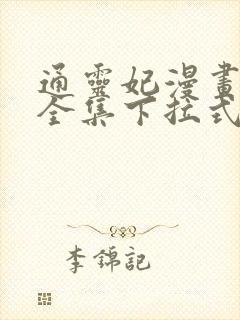 通靈妃漫畫
全集下拉式
李錦記